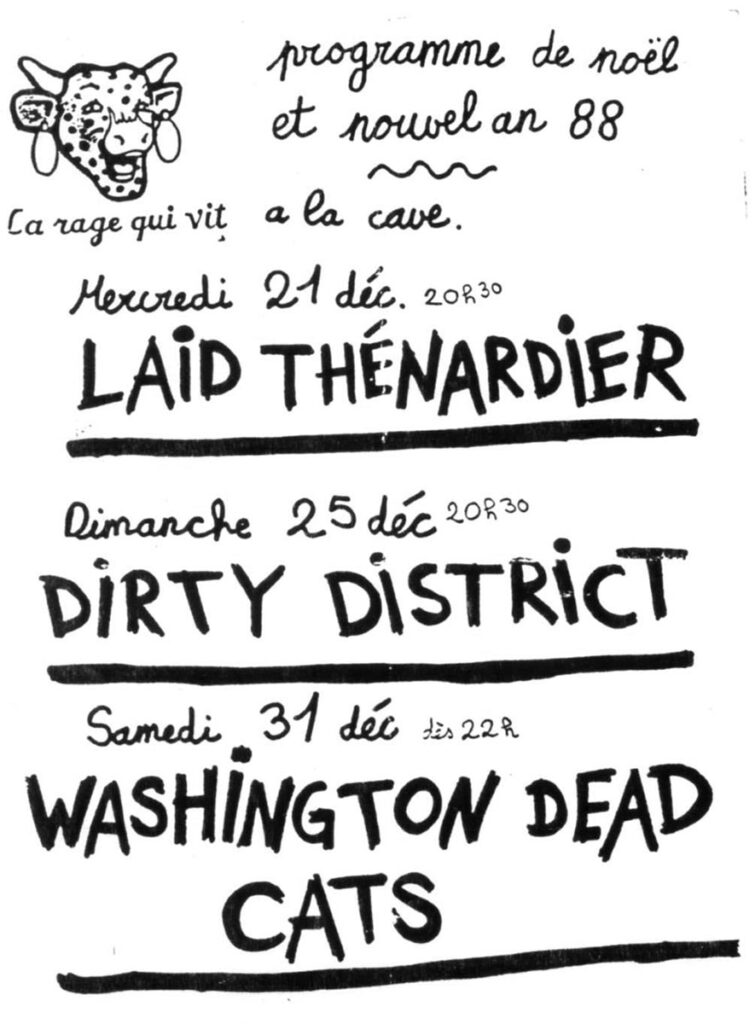 programme de noël
et nouvel an 88
La rage qui vit
a la cave.
Mercredi 21 déc. 20h30
LAiD THÉNARDiER
Dimanche 25 déc 20h30
DiRTY DiSTRiCT
Samedi 31 déc dès 22h
WASHiNGTON DEAD
CATS